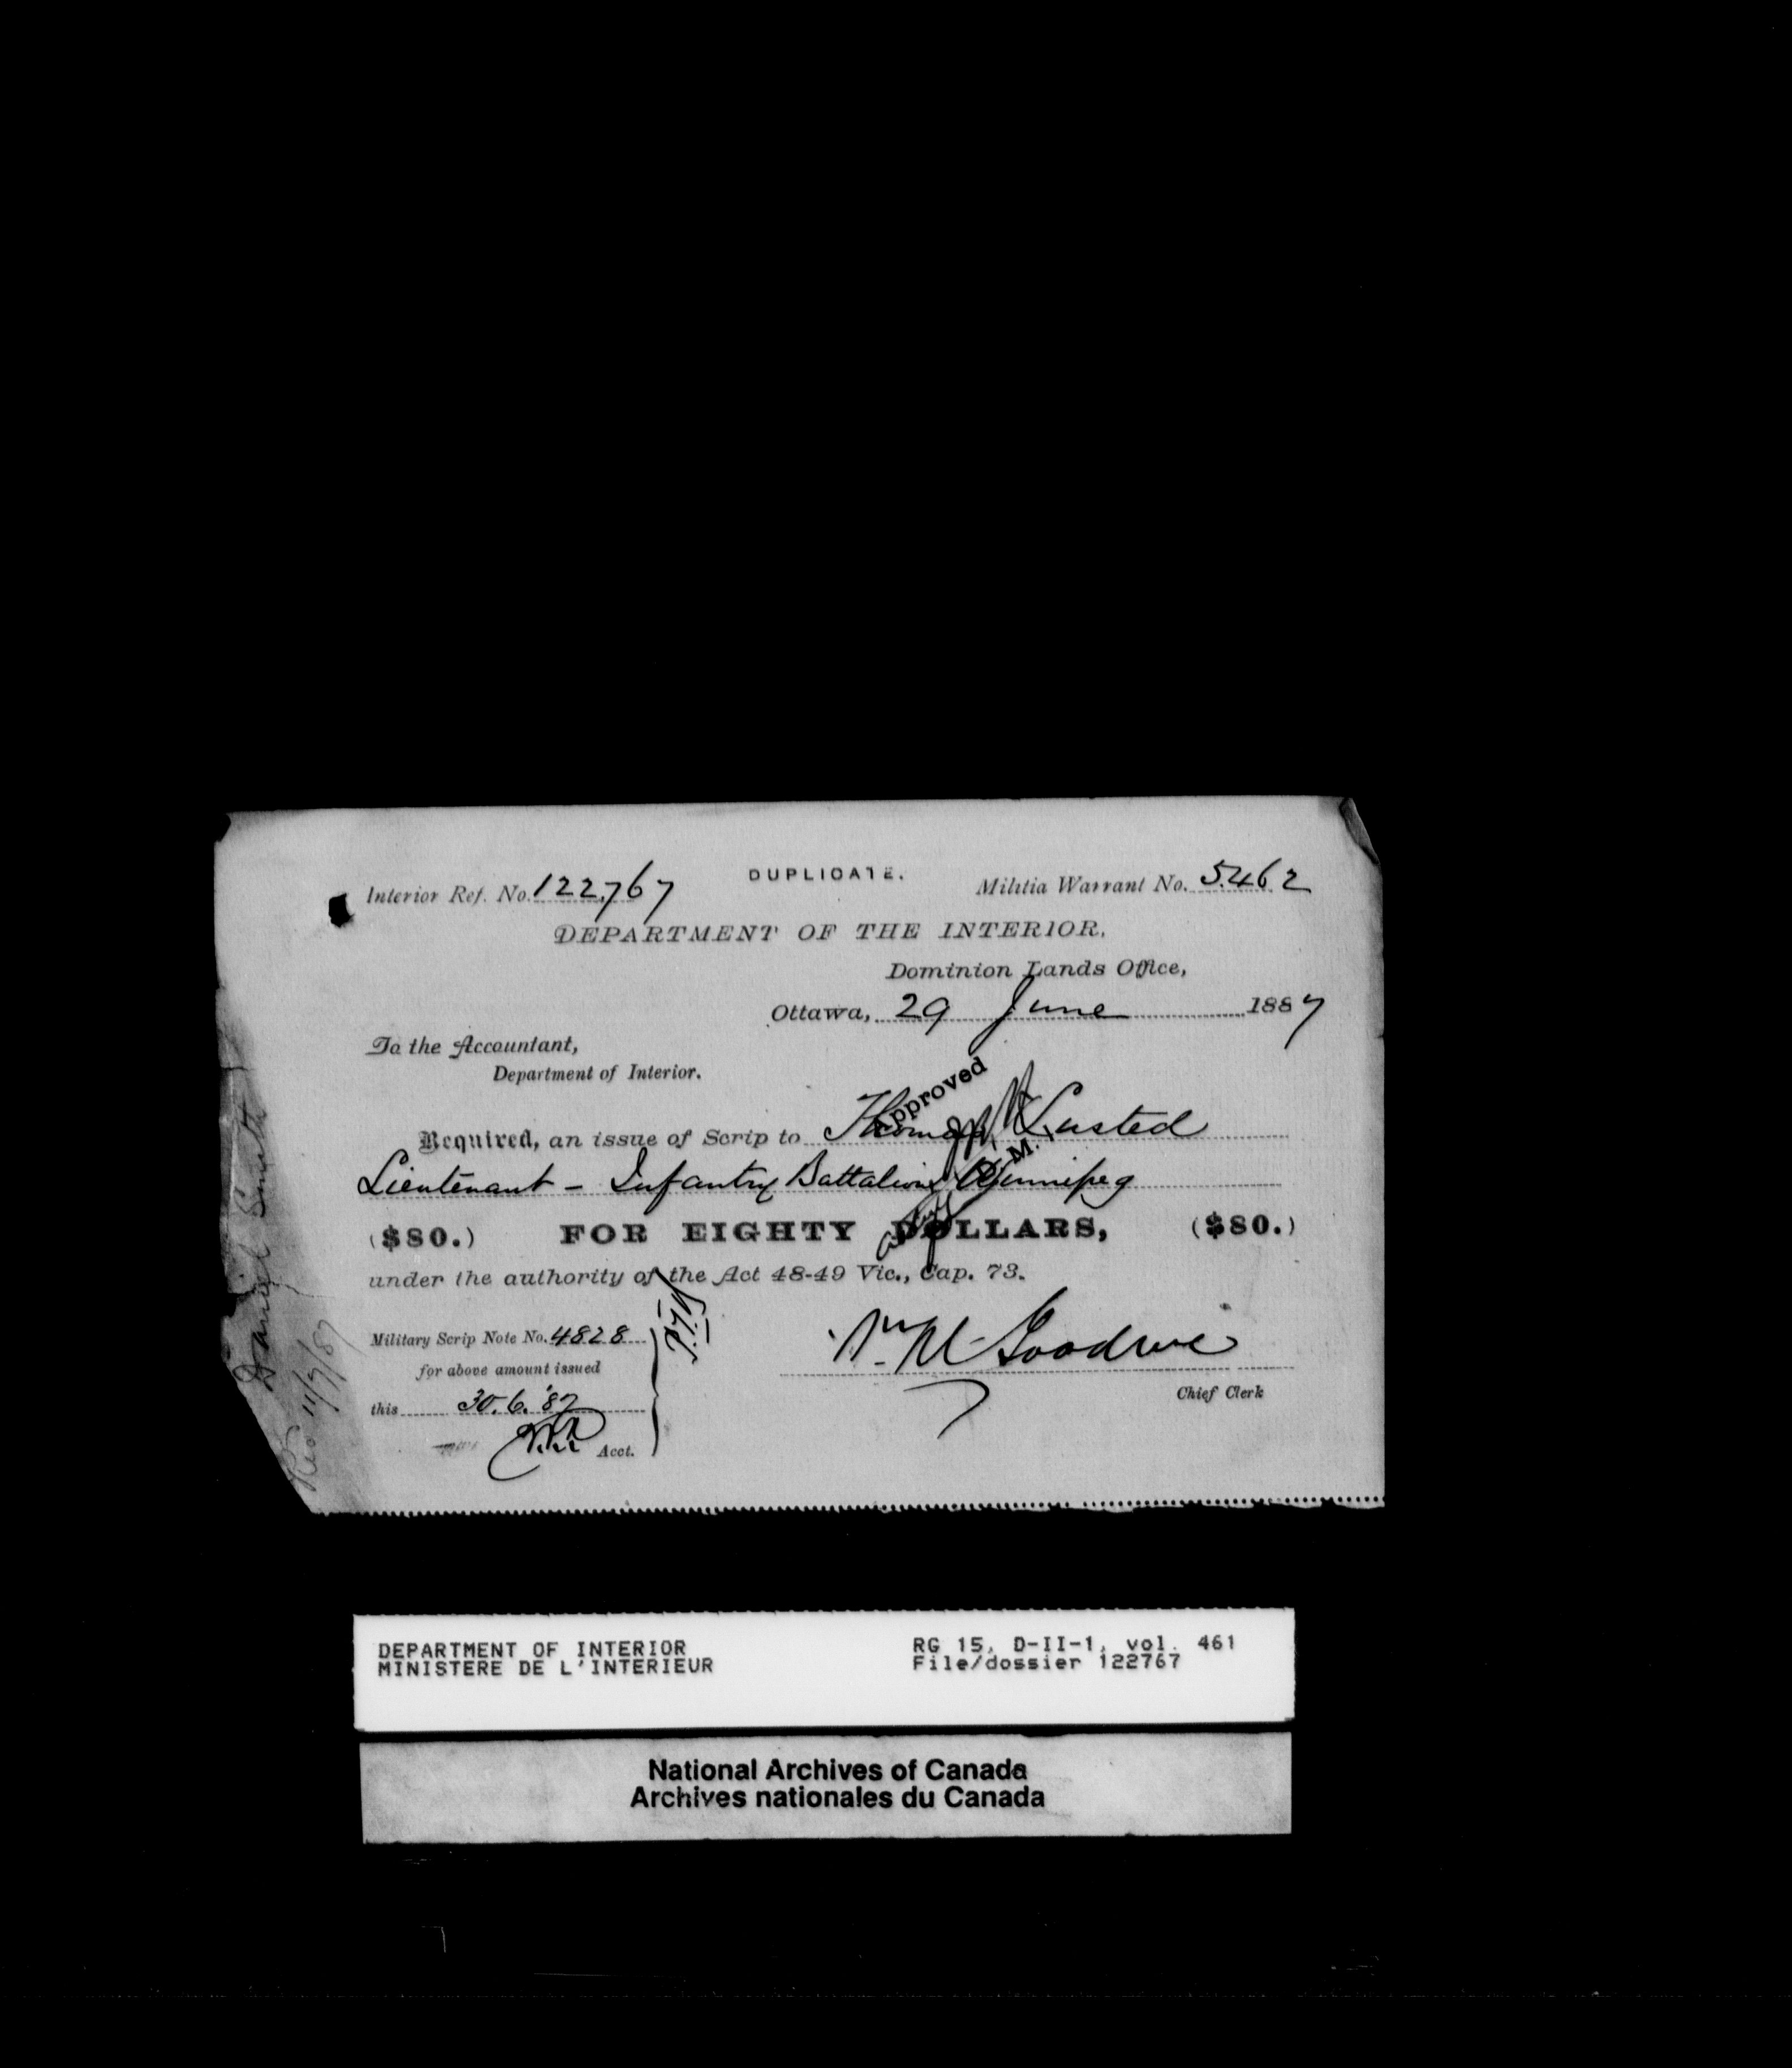 DUPLICATE.
Interior Ref. No. 122.767 Militia Warrant No. 5462
DEPARTMENT OF THE INTERIOR,
Dominion Lands Office,
Ottawa, 29 June 1887
To the Accountant,
Department of Interior.
Approved
Required, an issue of Scrip to Thomas Lusted
Lieutenant - Infantry Battalion Winnipeg
($80.) FOR EIGHTY DOLLARS, ($80.)
under the authority of the Act 48-49 Vic., Cap. 73.
Military Scrip Note No. 4828
for above amount issued
this 30.6.'87
Acct.
Goodwin
Chief Clerk
Daniel Smith
Rec 11/7/87
DEPARTMENT OF INTERIOR RG 15, D-II-1, vol. 461
MINISTERE DE L'INTERIEUR File/dossier 122767
National Archives of Canada
Archives nationales du Canada